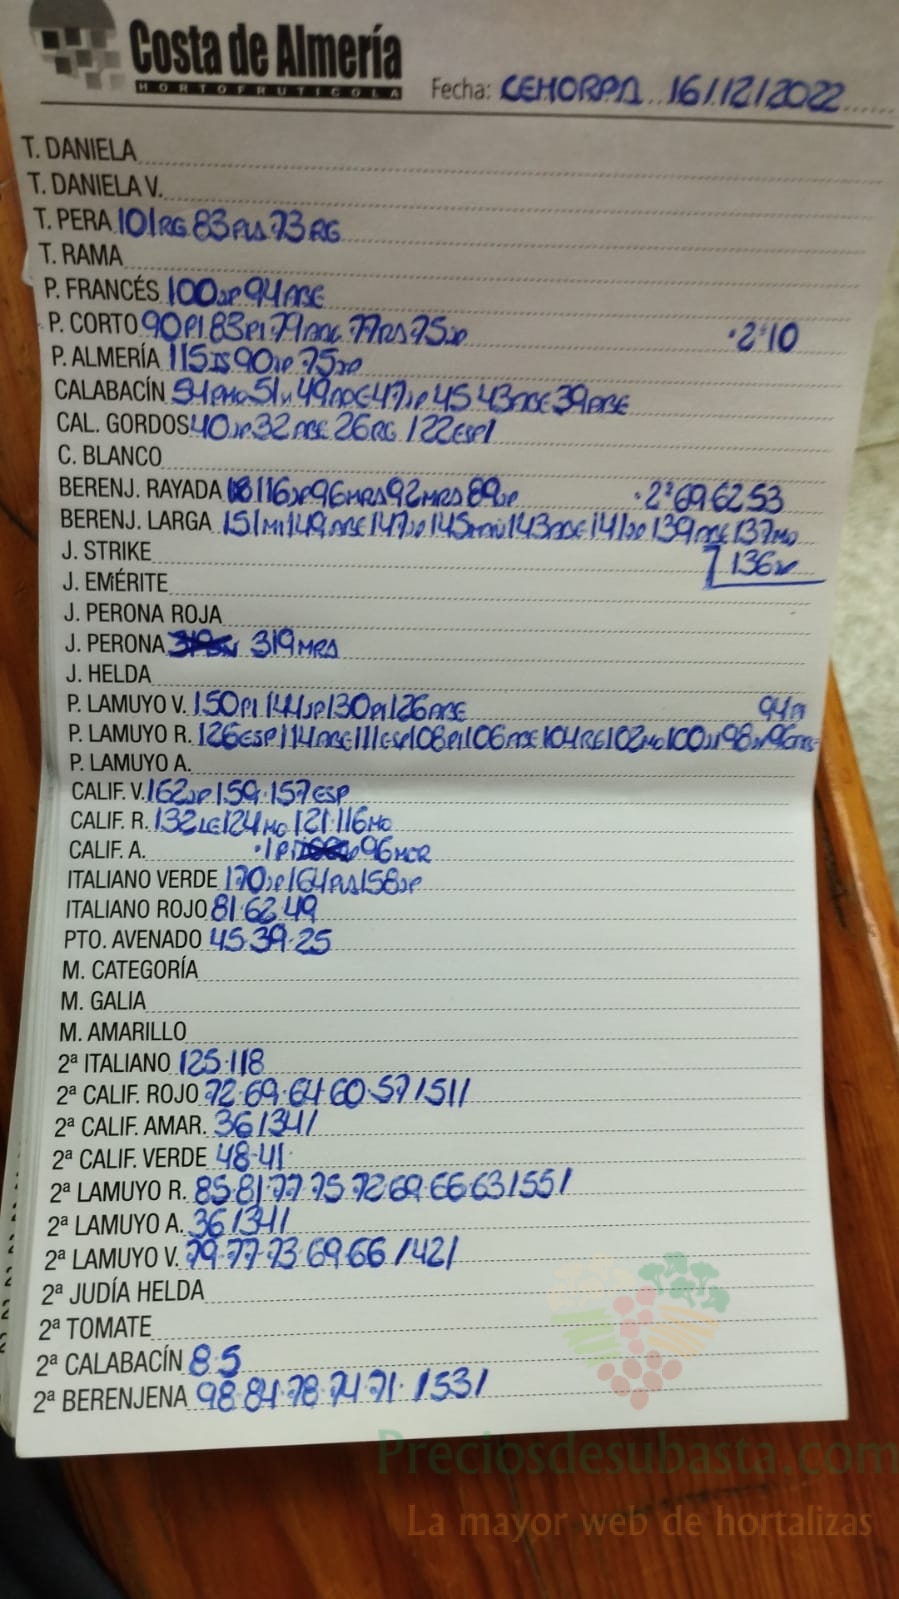 Costa de Almería
HORTOFRUTICOLA
Fecha: CEHORPA 16/12/2022
T. DANIELA
T. DANIELA V.
T. PERA 101RG 83PLA 73RG
T. RAMA
P. FRANCÉS 100JP 94ABE
P. CORTO 90PI 83PI 79ABE 77RS 75JP · 2ª 10
P. ALMERÍA 115IS 90JP 75JP
CALABACÍN 54PMO 51 49ABE 47JP 45 43ABE 39ABE
CAL. GORDOS 40JP 32ABE 26RG /22ESP/
C. BLANCO
BERENJ. RAYADA 116JP 96MRA 92MRA 89JP · 2ª 69.62.53
BERENJ. LARGA 151MI 149ABE 147JP 145 143ABE 141JP 139ABE 137MO
J. STRIKE 136JP
J. EMÉRITE
J. PERONA ROJA
J. PERONA 319MRA
J. HELDA
P. LAMUYO V. 150PI 144JP 130PI 126ABE 94PI
P. LAMUYO R. 126ESP 114ABE 111ESP 108PI 106ABE 104RG 102MO 100JP 98JP 96ABE
P. LAMUYO A.
CALIF. V. 162JP 159·157ESP
CALIF. R. 132LE 124MO 121·116MO
CALIF. A. 96MOR
ITALIANO VERDE 170JP 164PLA 158JP
ITALIANO ROJO 81·62·49
PTO. AVENADO 45·39·25
M. CATEGORÍA
M. GALIA
M. AMARILLO
2ª ITALIANO 125·118
2ª CALIF. ROJO 72·69·64·60·57/51/
2ª CALIF. AMAR. 36/34/
2ª CALIF. VERDE 48·41
2ª LAMUYO R. 85·81·77·75·72·69·66·63/55/
2ª LAMUYO A. 36/34/
2ª LAMUYO V. 79·77·73·69·66/42/
2ª JUDÍA HELDA
2ª TOMATE
2ª CALABACÍN 8·5
2ª BERENJENA 98·84·78·74·71·/53/
Preciosdesubasta.com
La mayor web de hortalizas